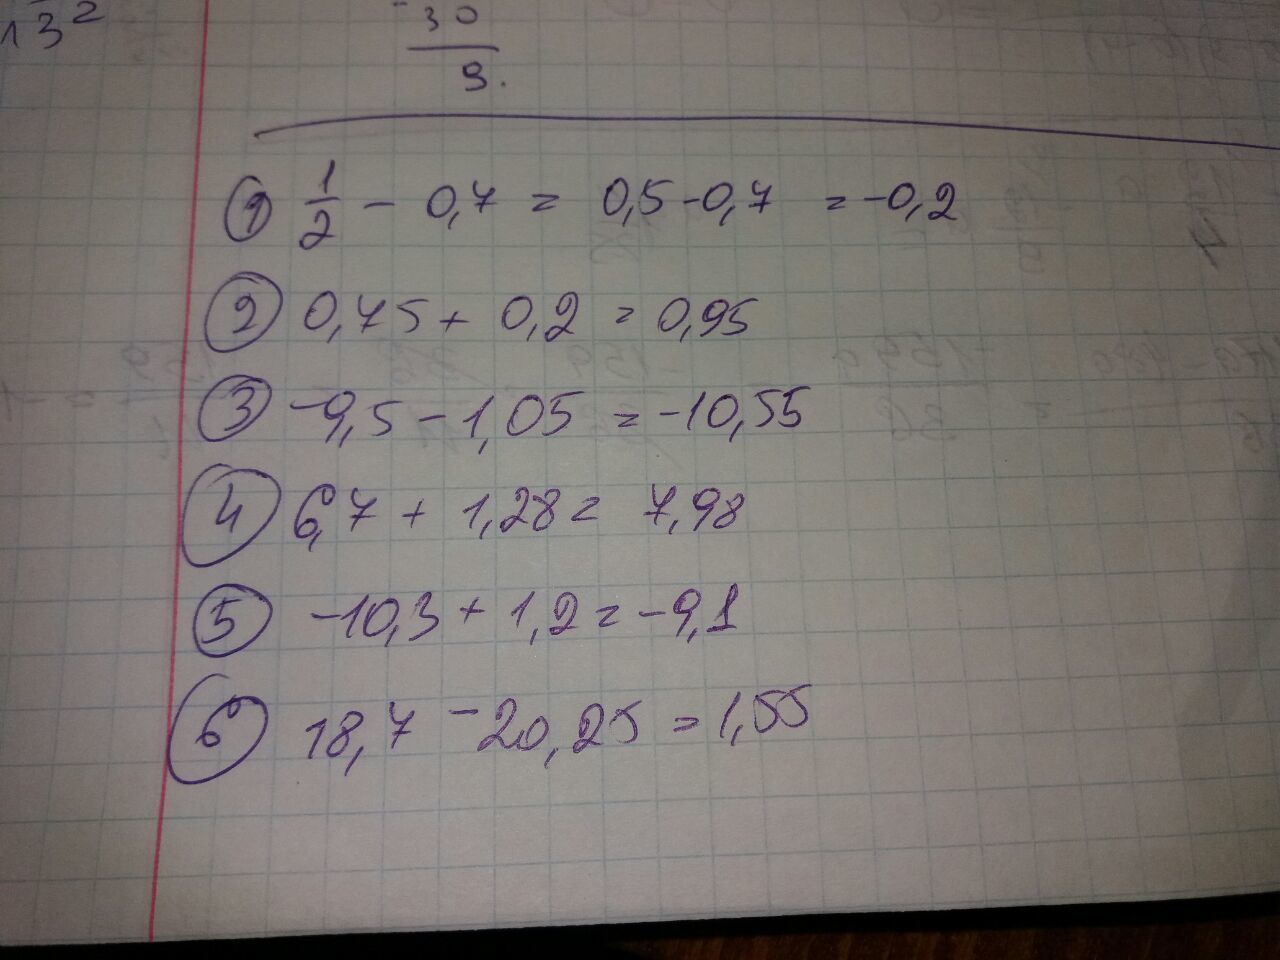 13²
-30
9.
① 1/2 - 0,7 = 0,5 - 0,7 = -0,2
② 0,75 + 0,2 = 0,95
③ -9,5 - 1,05 = -10,55
④ 6,7 + 1,28 = 7,98
⑤ -10,3 + 1,2 = -9,1
⑥ 18,7 - 20,25 = 1,55